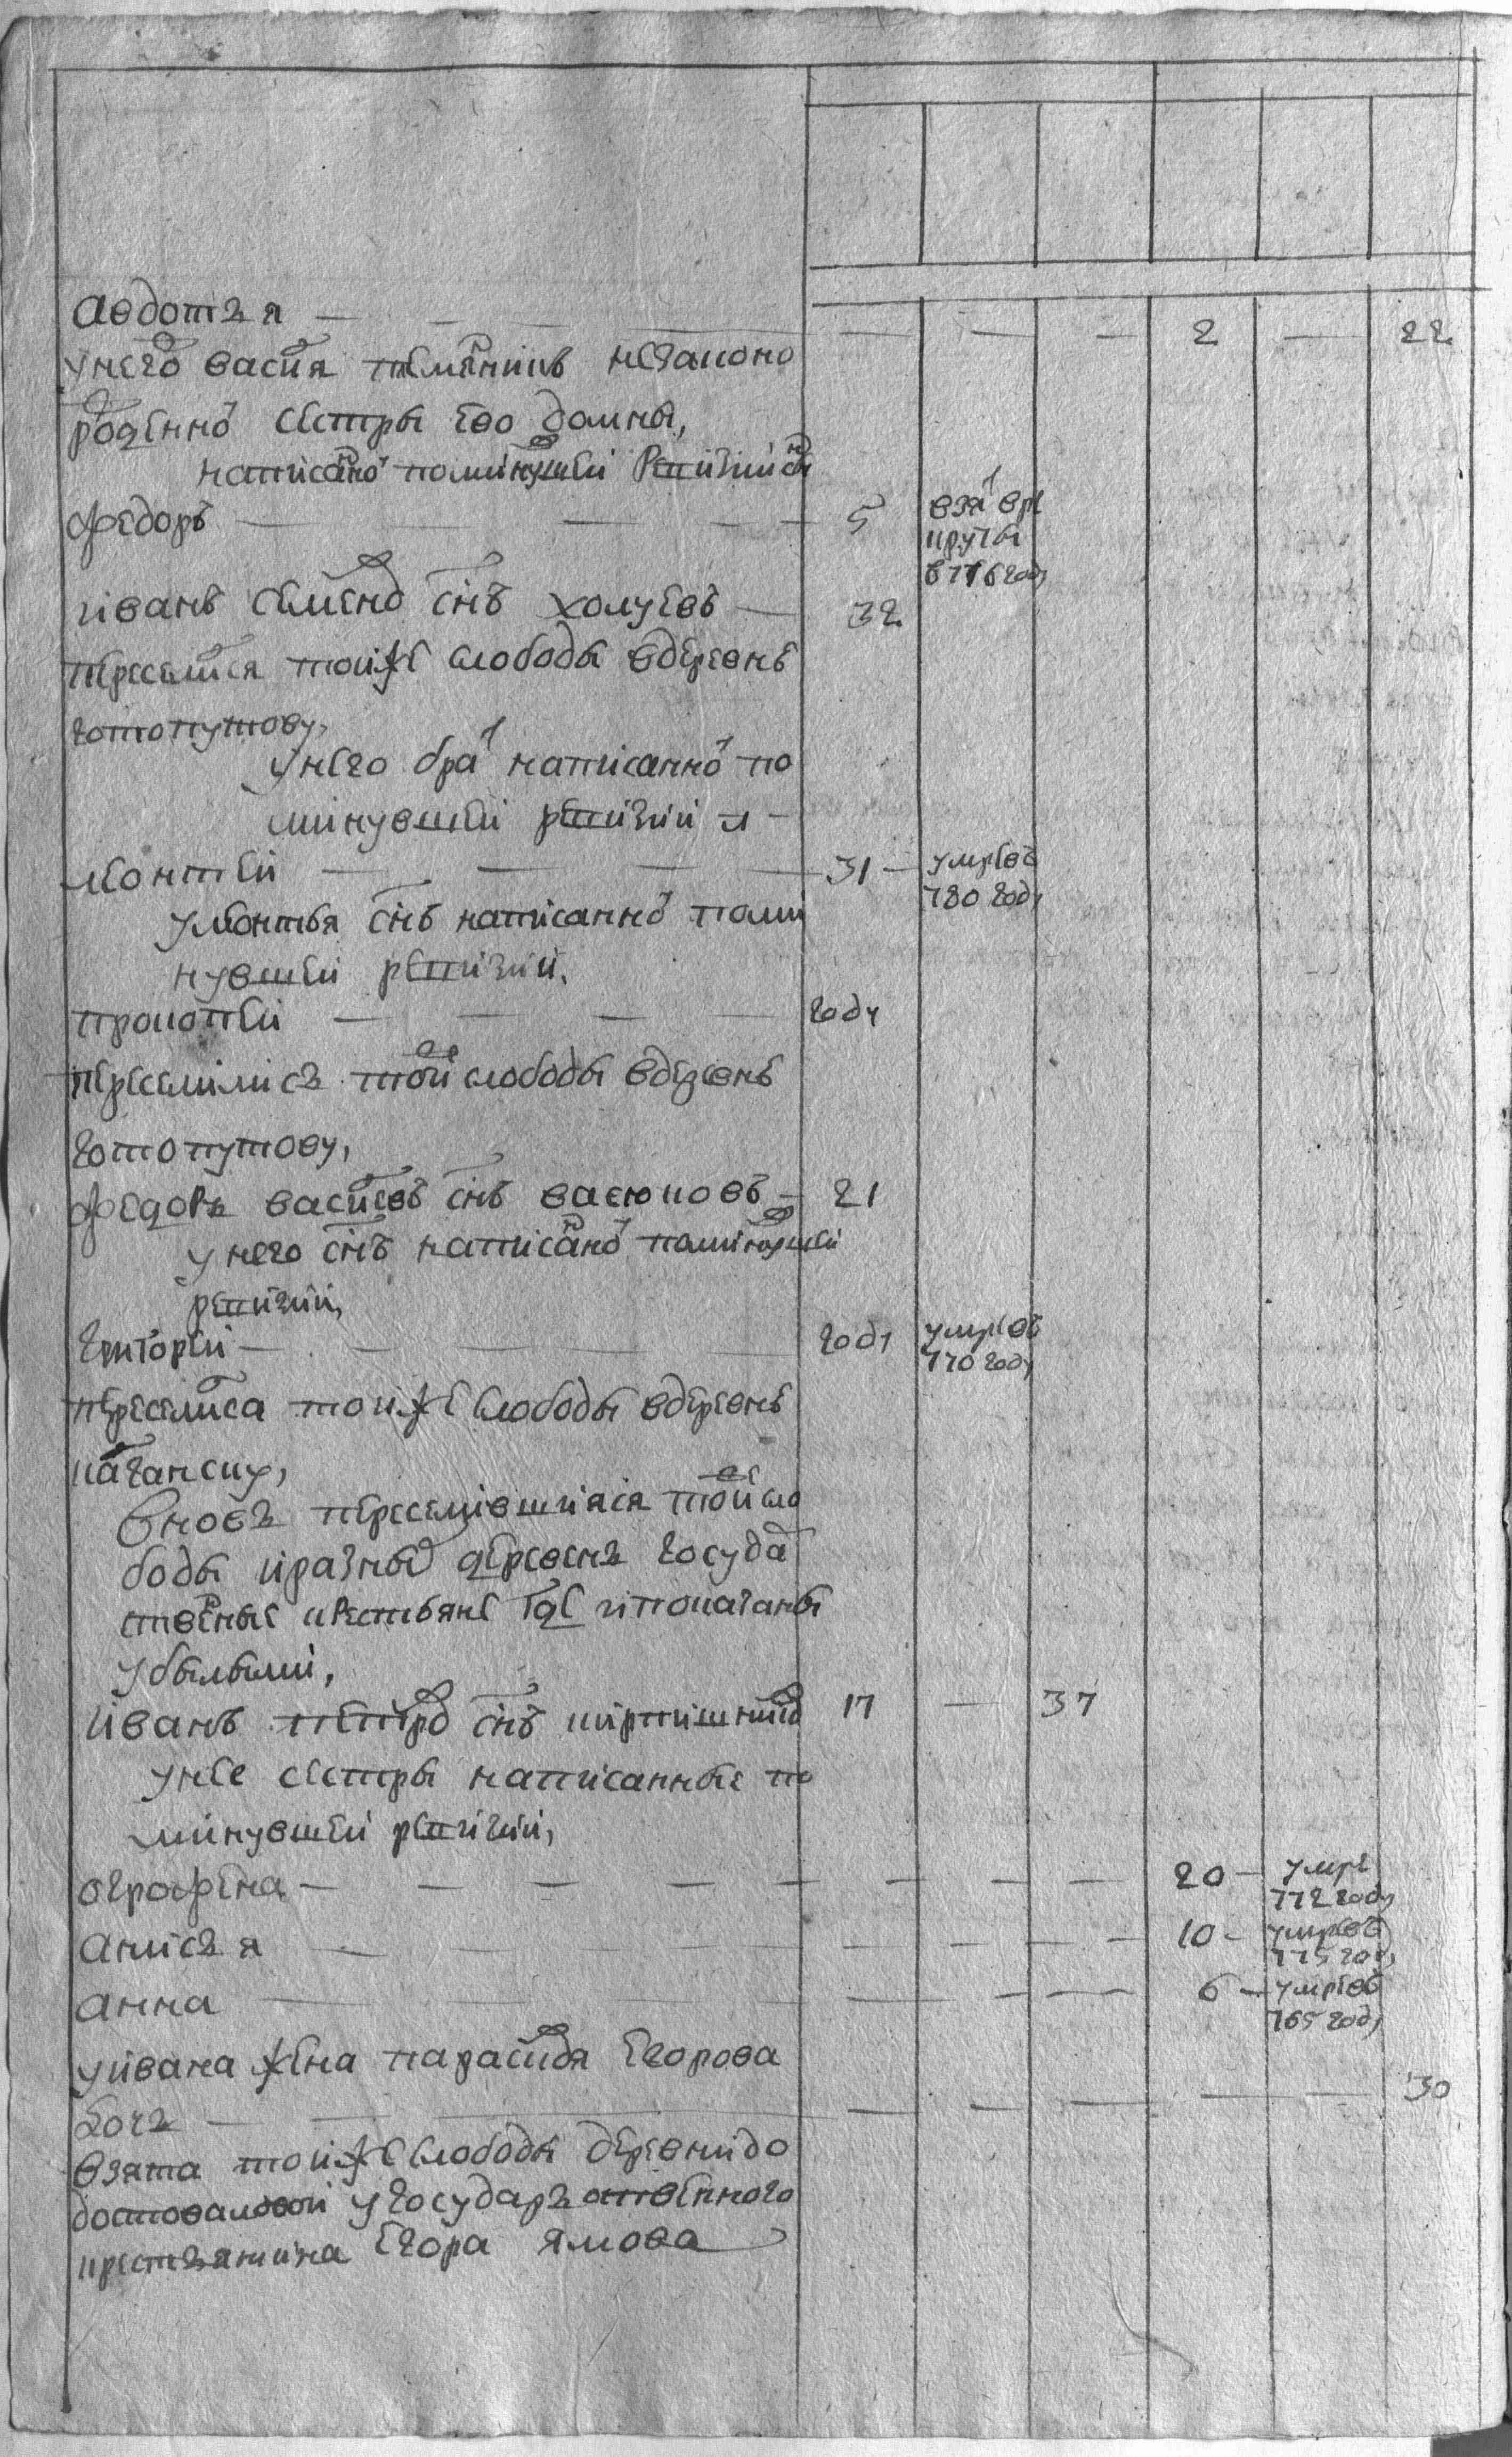 авдотья — — — — — — — 2 — 22
у него васи́я племя́никъ незаконо
рожденно́ сестры ево домны,
написано по минувшей ревизии
федоръ — — — 5 взя́ в ре
круты
в 776 году
иванъ семено́ сн҃ъ холуевъ — 32
переселися тоиже слободы в деревню
готопутову,
у него бра́ написанно́ по
минувшей ревизии
леонтей — — — 31 — умре въ
780 году
у леонтья сн҃ъ написанно́ по ми
нувшей ревизии,
прокопей — — — году
переселились той слободы в деревню
готопутову,
федоръ васи́евъ сн҃ъ васюковъ — 21
у него сн҃ъ написано́ по минувшей
ревизии,
григорей — — — году умре въ
770 году
переселися тоиже слободы в деревню
Вновь переселившияся той сло
боды и разны́ деревень госуда́
ственные крестьяне где и показаны
убылыми,
иванъ петро́ сн҃ъ 17 — 37
у нее сестры написанные по
минувшей ревизии,
аграфена — — — — — — — 20 — умре
772 году
анисья — — — — — — 10 — умре въ
775 году
анна — — — — — 6 — умре въ
765 году
у ивана жена параскевья егорова
дочь — — — — — — — 30
взята тоиже слободы деревни до
у государственного
крестьянина егора